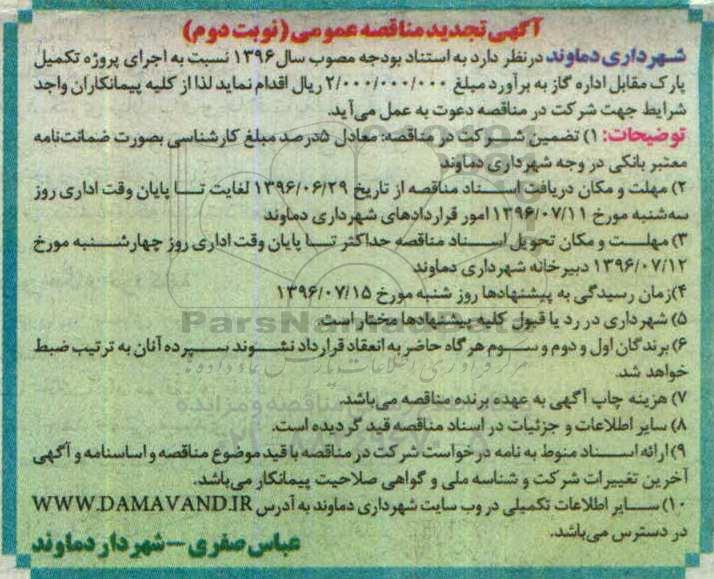 آگهی تجدید مناقصه عمومی (نوبت دوم)
شهرداری دماوند در نظر دارد به استناد بودجه مصوب سال ۱۳۹۶ نسبت به اجرای پروژه تکمیل
پارک مقابل اداره گاز به برآورد مبلغ ۲/۰۰۰/۰۰۰/۰۰۰ ریال اقدام نماید لذا از کلیه پیمانکاران واجد
شرایط جهت شرکت در مناقصه دعوت به عمل می‌آید.
توضیحات: ۱) تضمین شرکت در مناقصه: معادل ۵درصد مبلغ کارشناسی بصورت ضمانت‌نامه
معتبر بانکی در وجه شهرداری دماوند
۲) مهلت و مکان دریافت اسناد مناقصه از تاریخ ۱۳۹۶/۰۶/۲۹ لغایت تا پایان وقت اداری روز
سه‌شنبه مورخ ۱۳۹۶/۰۷/۱۱ امور قراردادهای شهرداری دماوند
۳) مهلت و مکان تحویل اسناد مناقصه حداکثر تا پایان وقت اداری روز چهارشنبه مورخ
۱۳۹۶/۰۷/۱۲ دبیرخانه شهرداری دماوند
۴)زمان رسیدگی به پیشنهادها روز شنبه مورخ ۱۳۹۶/۰۷/۱۵
۵) شهرداری در رد یا قبول کلیه پیشنهادها مختار است
۶) برندگان اول و دوم و سوم هرگاه حاضر به انعقاد قرارداد نشوند سپرده آنان به ترتیب ضبط
خواهد شد.
۷) هزینه چاپ آگهی به عهده برنده مناقصه می‌باشد.
۸) سایر اطلاعات و جزئیات در اسناد مناقصه قید گردیده است.
۹) ارائه اسناد منوط به نامه درخواست شرکت در مناقصه با قید موضوع مناقصه و اساسنامه و آگهی
آخرین تغییرات شرکت و شناسه ملی و گواهی صلاحیت پیمانکار می‌باشد.
۱۰) سایر اطلاعات تکمیلی در وب سایت شهرداری دماوند به آدرس WWW.DAMAVAND.IR
در دسترس می‌باشد.
عباس صفری – شهردار دماوند